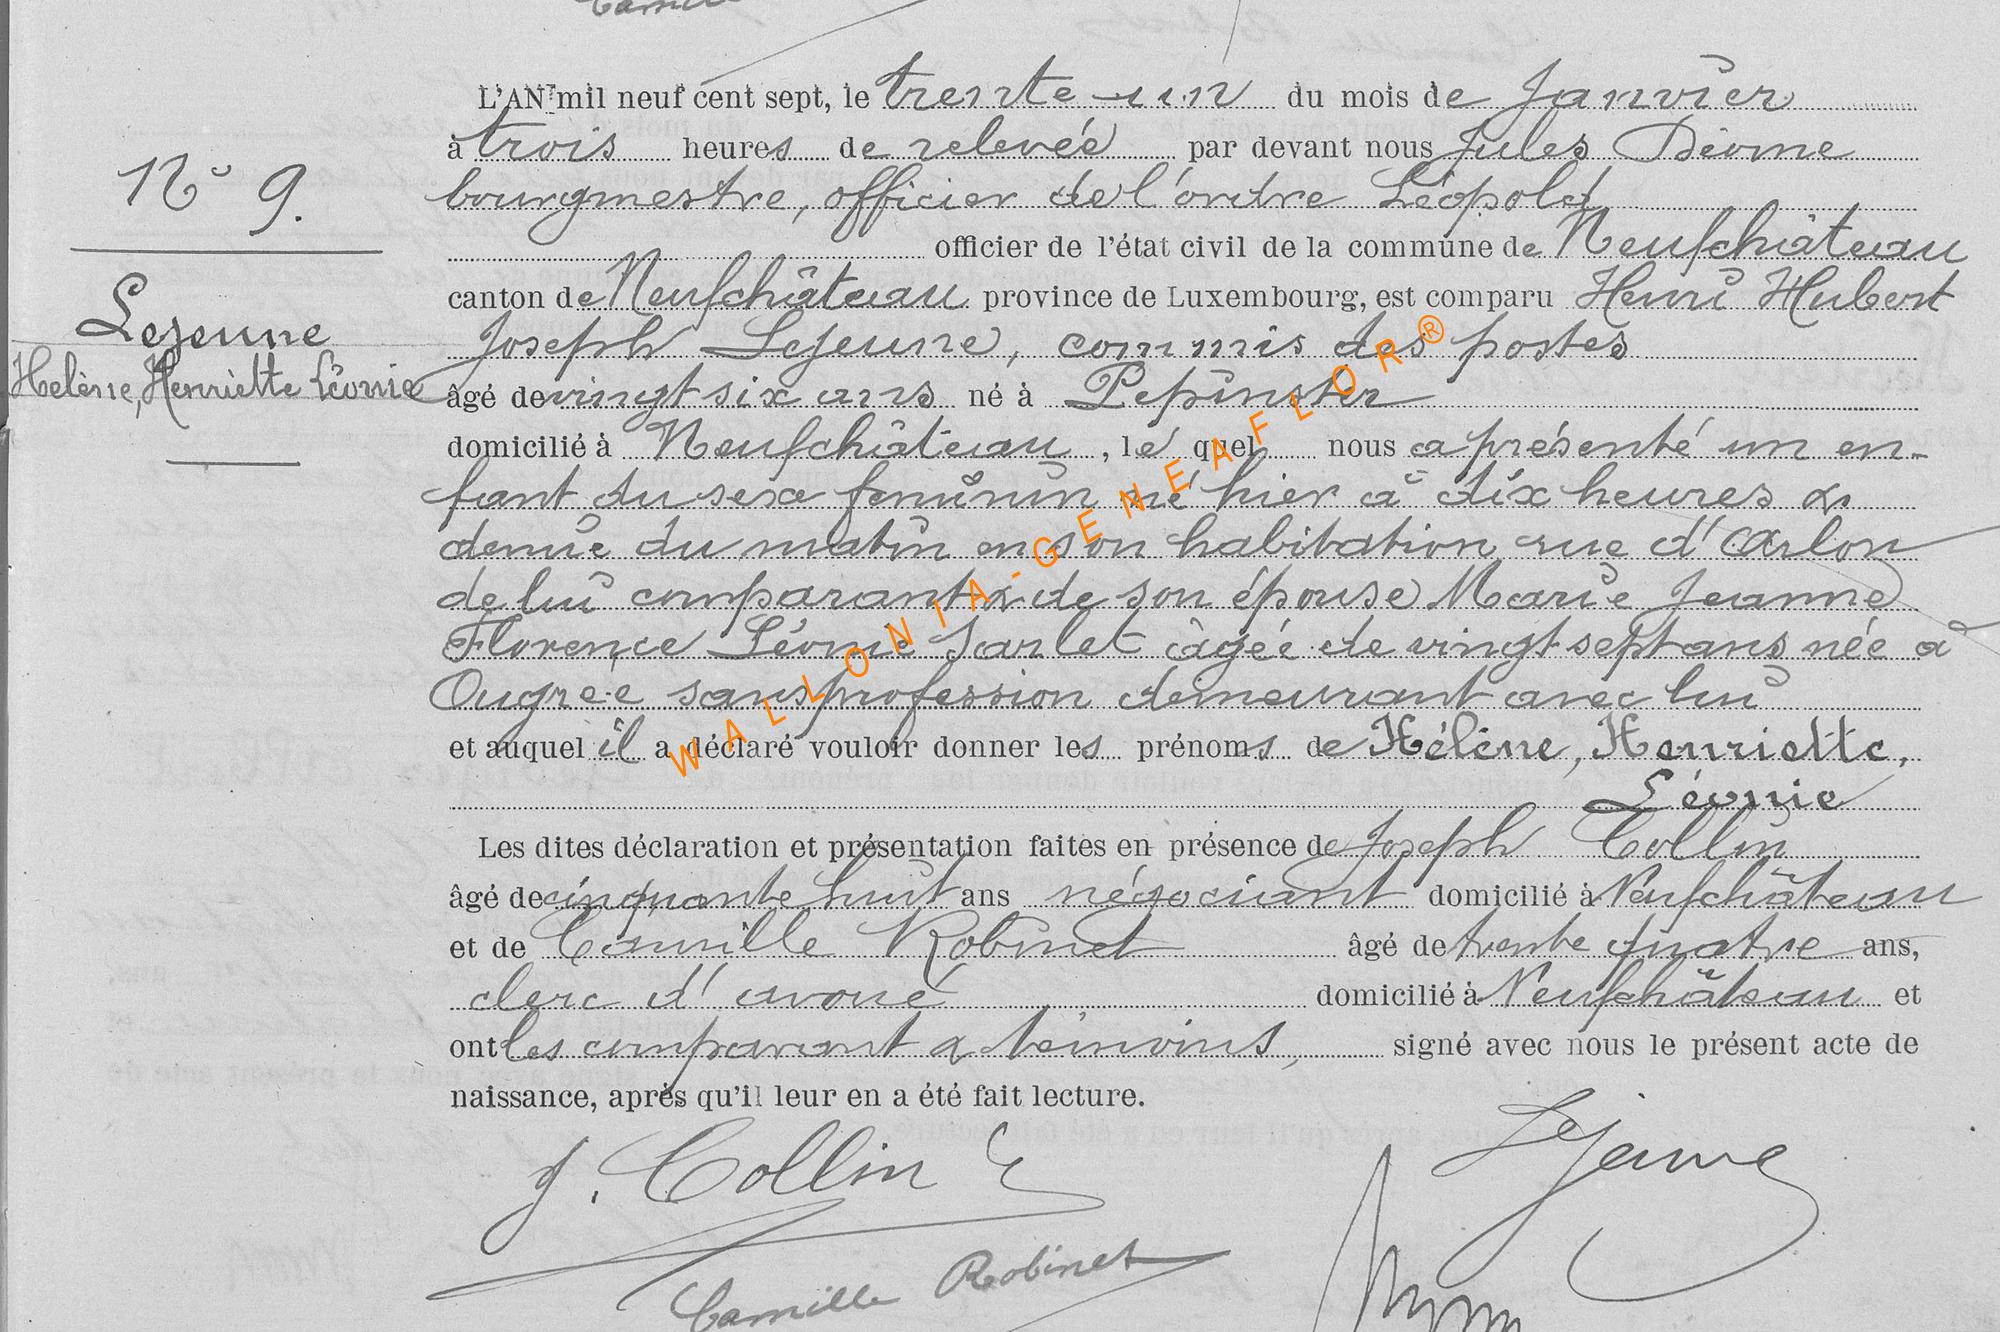 Camille
L'AN mil neuf cent sept, le trente-un du mois de Janvier
à trois heures de relevée par devant nous Jules
bourgmestre, officier de l'ordre Léopold
officier de l'état civil de la commune de Neufchâteau
canton de Neufchâteau province de Luxembourg, est comparu Henri Hubert
Joseph Lejeune, commis des postes
âgé de vingt six ans né à Pepinster
domicilié à Neufchâteau, le quel nous a présenté un en-
fant du sexe feminin né hier à dix heures &
demie du matin en son habitation, rue d'Arlon
de lui comparant & de son épouse Marie Jeanne
Florence Léonie Sarlet âgée de vingt sept ans née à
Ougrée sans profession demeurant avec lui
et auquel il a déclaré vouloir donner les prénoms de Hélène, Henriette,
Léonie
Les dites déclaration et présentation faites en présence de Joseph Collin
âgé de cinquante huit ans négociant domicilié à Neufchâteau
et de Camille Robinet âgé de trente quatre ans,
clerc d'avoué domicilié à Neufchâteau et
ont les comparant & témoins, signé avec nous le présent acte de
naissance, après qu'il leur en a été fait lecture.
N° 9.
Lejeune
Helène, Henriette Léonie
J. Collin
Lejeune
Camille Robinet
WALLONIA-GENEAFLOR®